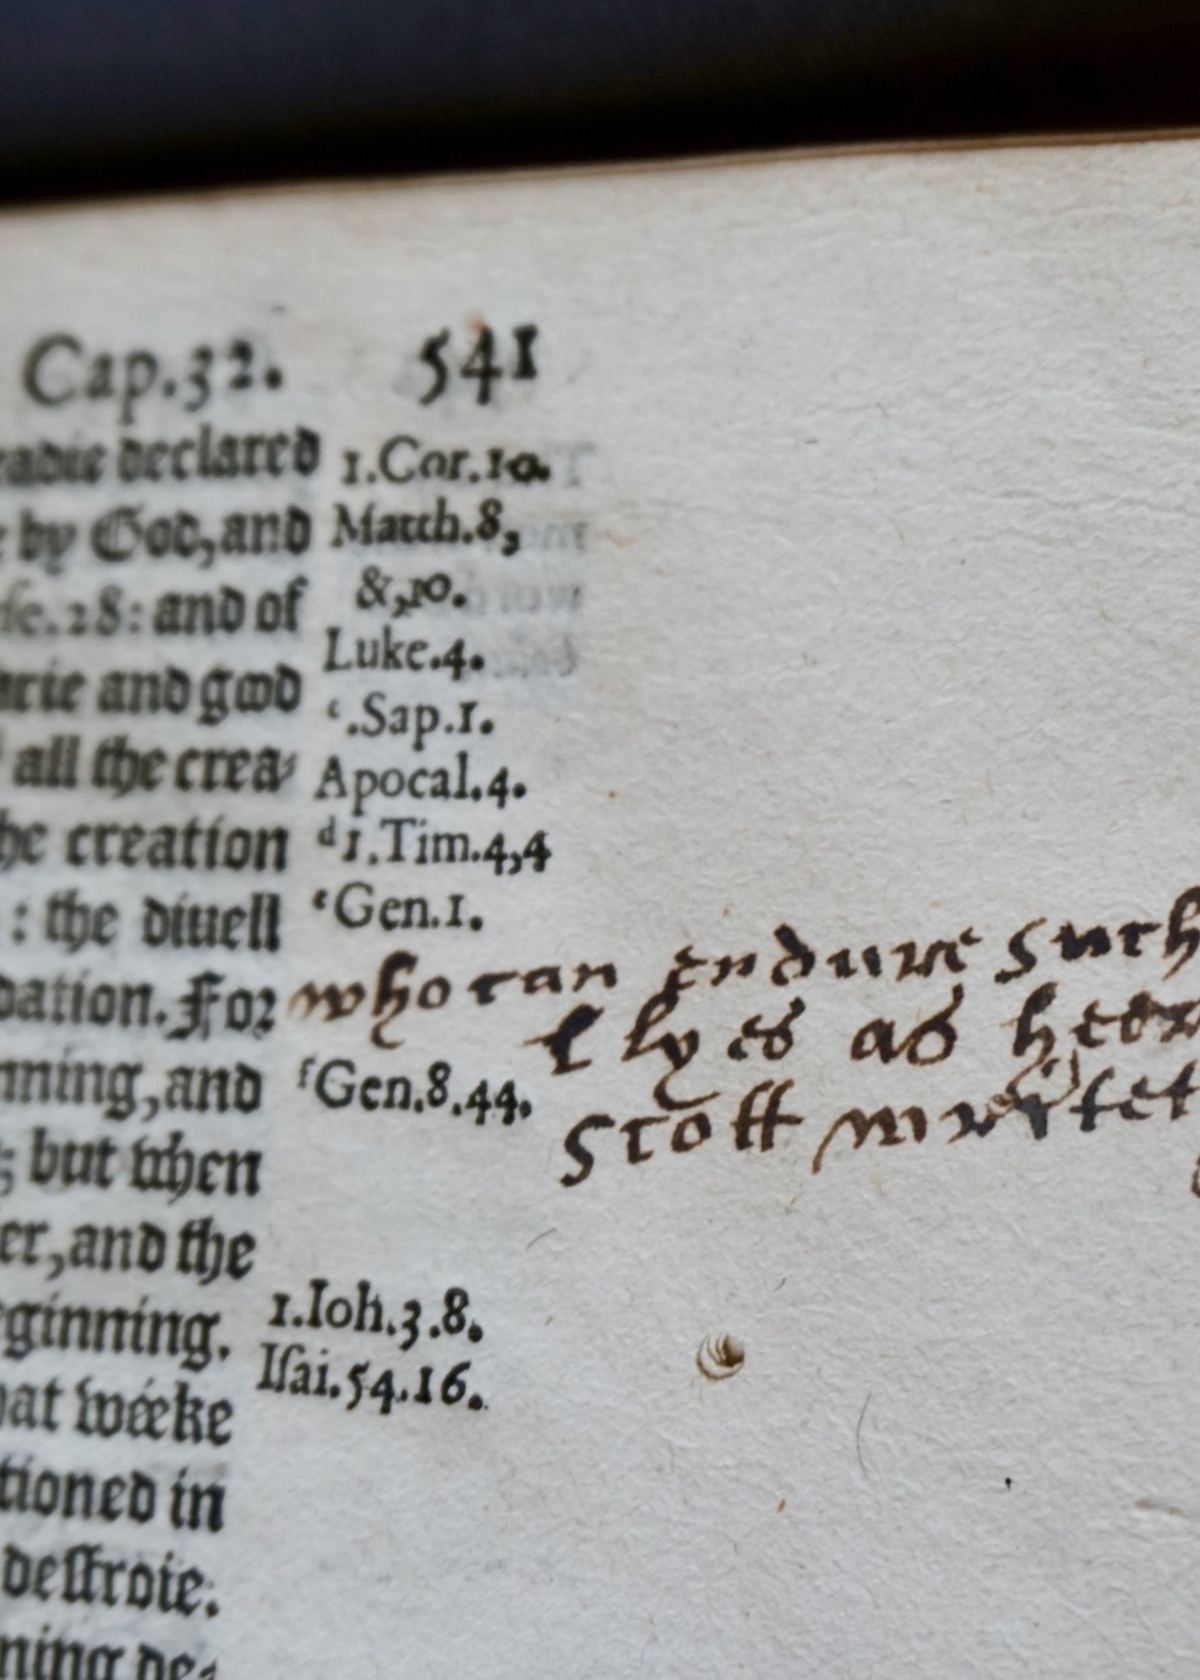 Cap.32. 541
declared 1.Cor.10.
by God, and Matth.8,
&,10.
ſe.28: and of
Luke.4.
and good
c.Sap.1.
all the crea-
Apocal.4.
creation d1.Tim.4,4
: the diuell eGen.1.
dation. For who can endure such
lyes as heer
and fGen.8.44.
Scott wrytet
; but when
er, and the
ginning. 1.Ioh.3.8.
Iſai.54.16.
wéeke
tioned in
deſtroie.
ning de-